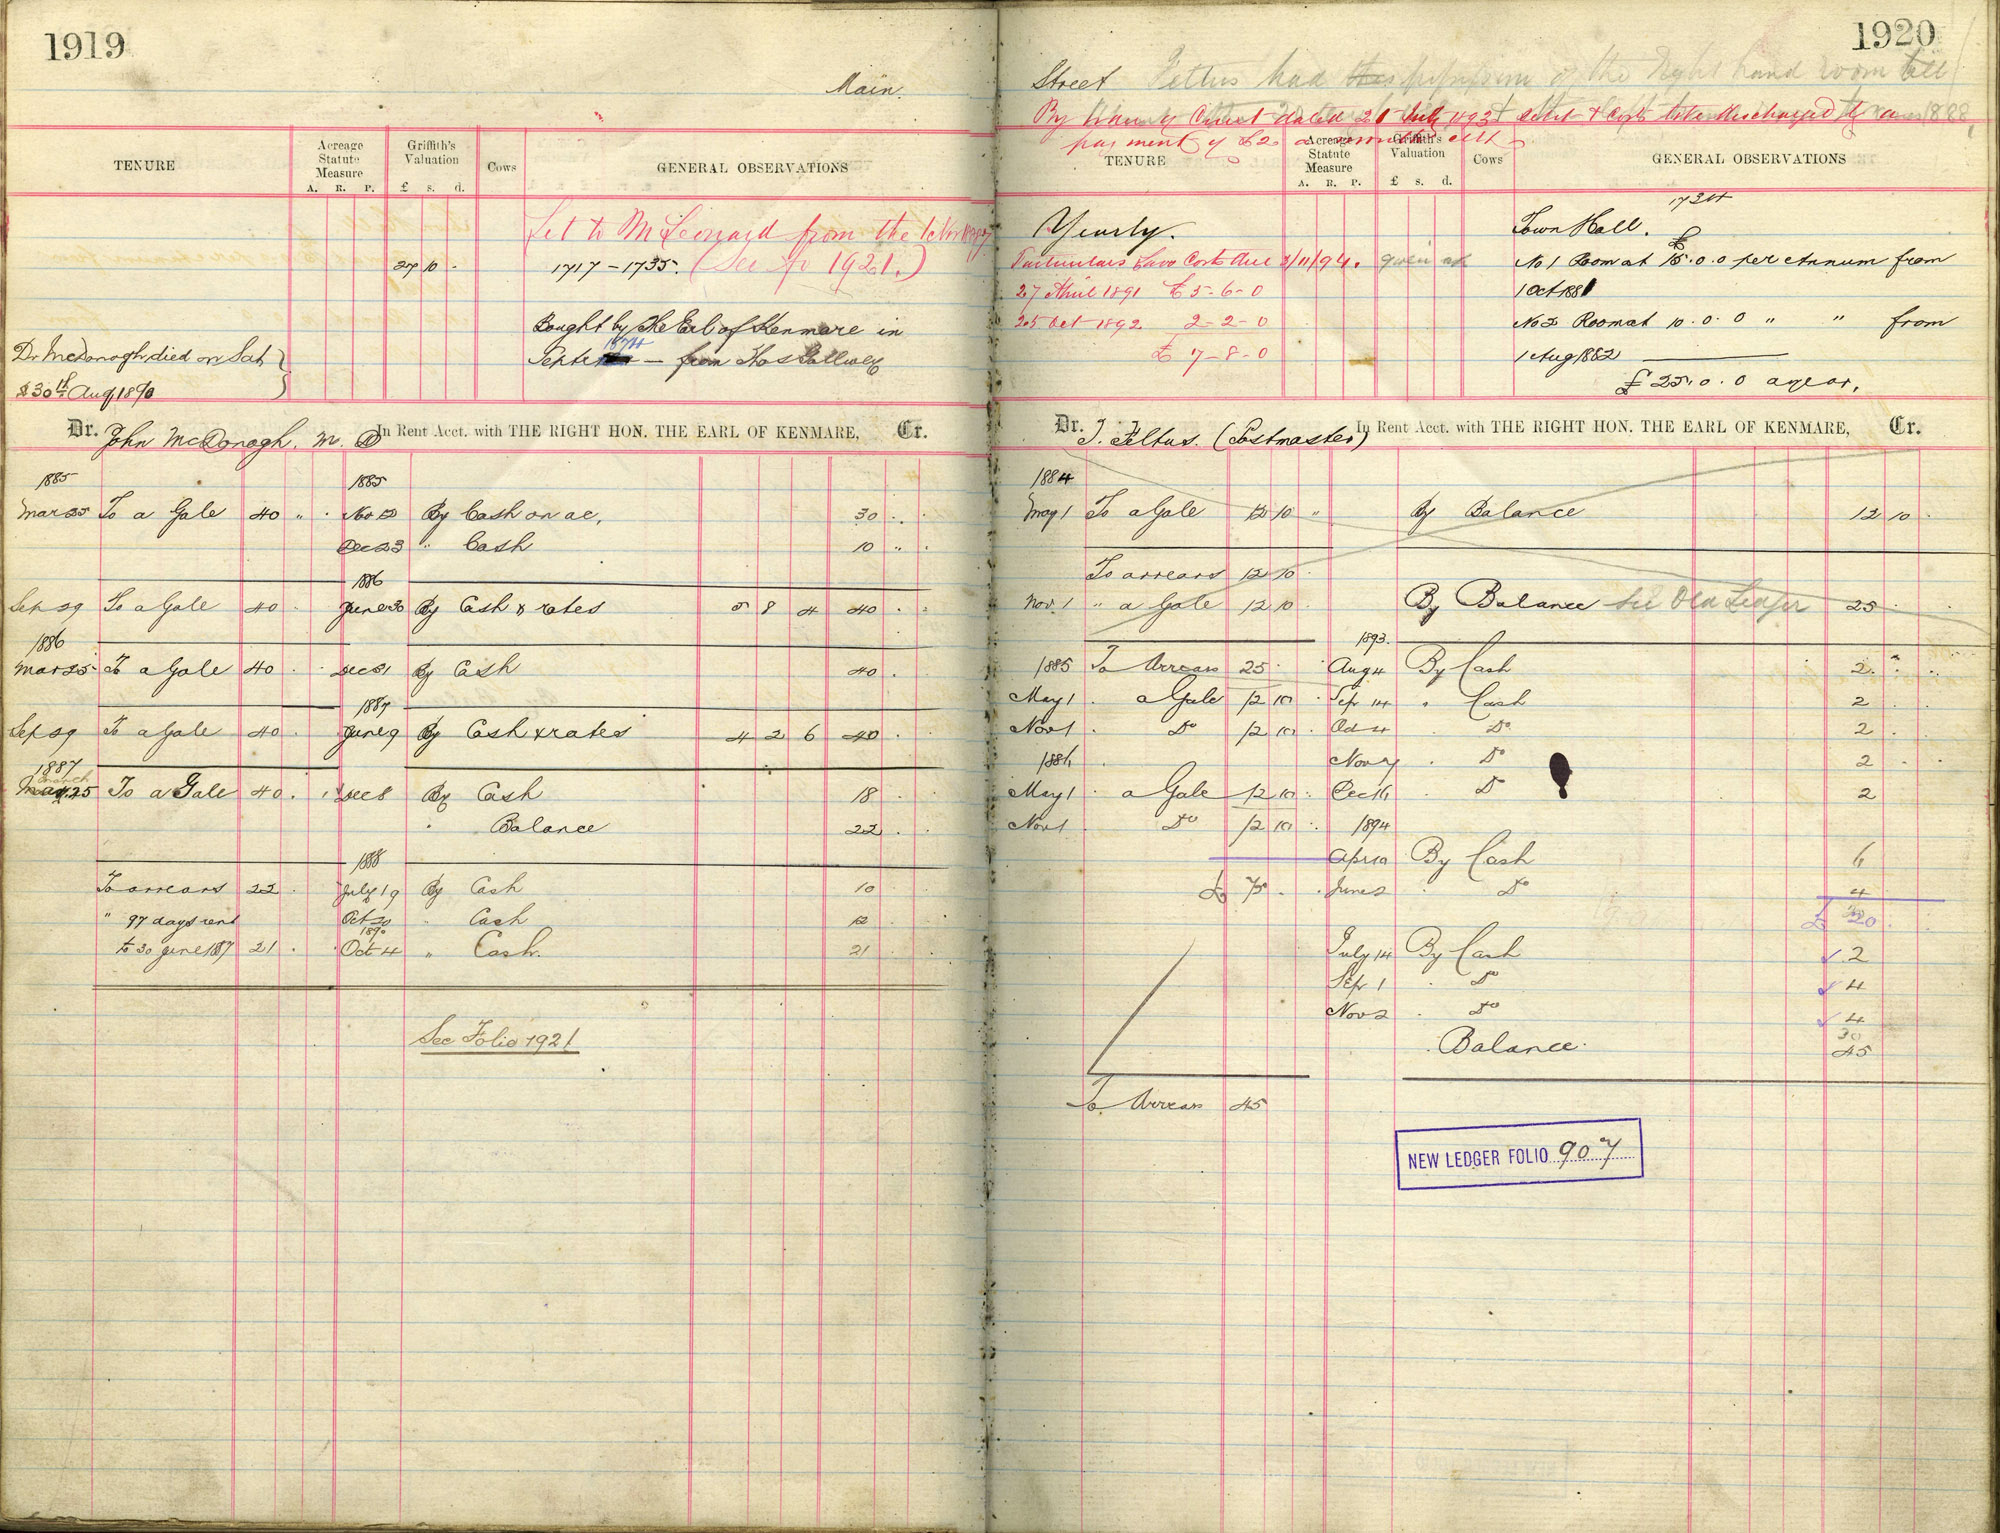 1919
Main.
TENURE
Acreage Statute Measure
A. R. P.
Griffith's Valuation
£ s. d.
Cows
GENERAL OBSERVATIONS
Let to McLeonard from the 1 Nov
27 10 -
1717 - 1735. (See fo 1921.)
Bought by The Earl of Kenmare in
Septe 1874 — from Thos Gallwey
Dr McDonogh died on Sat
30th Aug 1890
Dr. John McDonogh. M. D In Rent Acct. with THE RIGHT HON. THE EARL OF KENMARE, Cr.
1885 1885
Mar 25 To a Gale 40 " . Nov By Cash on ac, 30 . .
Dec 23 " Cash 10 " .
1886
Sep 29 To a Gale 40 . June 30 By Cash & rates 5 8 4 40 . .
1886
Mar 25 To a Gale 40 . . Dec 31 By Cash 40 .
1887
Sep 29 To a Gale 40 . June 9 By Cash & rates 4 2 6 40 .
1887
March
25 To a Gale 40 . . Dec 8 By Cash 18 .
" Balance 22 .
1888
To arrears 22 . July 19 By Cash 10
" 97 days rent Oct 20 " Cash 12
1890
to 30 June 1887 21 . . Oct 4 " Cash. 21
See Folio 1921
1920
Street Feltus had possession of the Right hand room till
By Court dated 21 July 1893 debt & Costs to be discharged by a
1888
payment of £2 a month
TENURE
Acreage Statute Measure
A. R. P.
Griffith's Valuation
£ s. d.
Cows
GENERAL OBSERVATIONS
1734
Yearly. Town Hall. £
Particulars Law Costs due 2/11/94. No 1 Room at 15.0.0 per Annum from
27 April 1891 £5-6-0 1 Oct 1881
25 Oct 1892 2-2-0 No 2 Room at 10.0.0 " " from
£ 7-8-0 1 Aug 1882
£25.0.0 a year.
Dr. J. Feltus. (Postmaster) In Rent Acct. with THE RIGHT HON. THE EARL OF KENMARE, Cr.
1884
May 1 To a Gale 12 10 " By Balance 12 10 .
To arrears 12 10
Nov. 1 " a Gale 12 10 By Balance See Old Ledger 25 . .
1893.
1885 To Arrears 25 . Aug 4 By Cash 2 . .
May 1 . a Gale 12 10 . Sep 14 " Cash 2 . .
Nov 1 . Do 12 10 . Oct 4 Do 2 .
1886 Nov 7 . Do 2 . .
May 1 . a Gale 12 10 . Dec 16 . Do 2
Nov 1 Do 12 10 . 1894
Apr 10 By Cash 6
£ 75 . . June 2 . Do 4
£ 20
July 14 By Cash 2
Sep 1 . Do 4
Nov 2 . Do 4
30
. Balance. 45
To Arrears 45
NEW LEDGER FOLIO 907